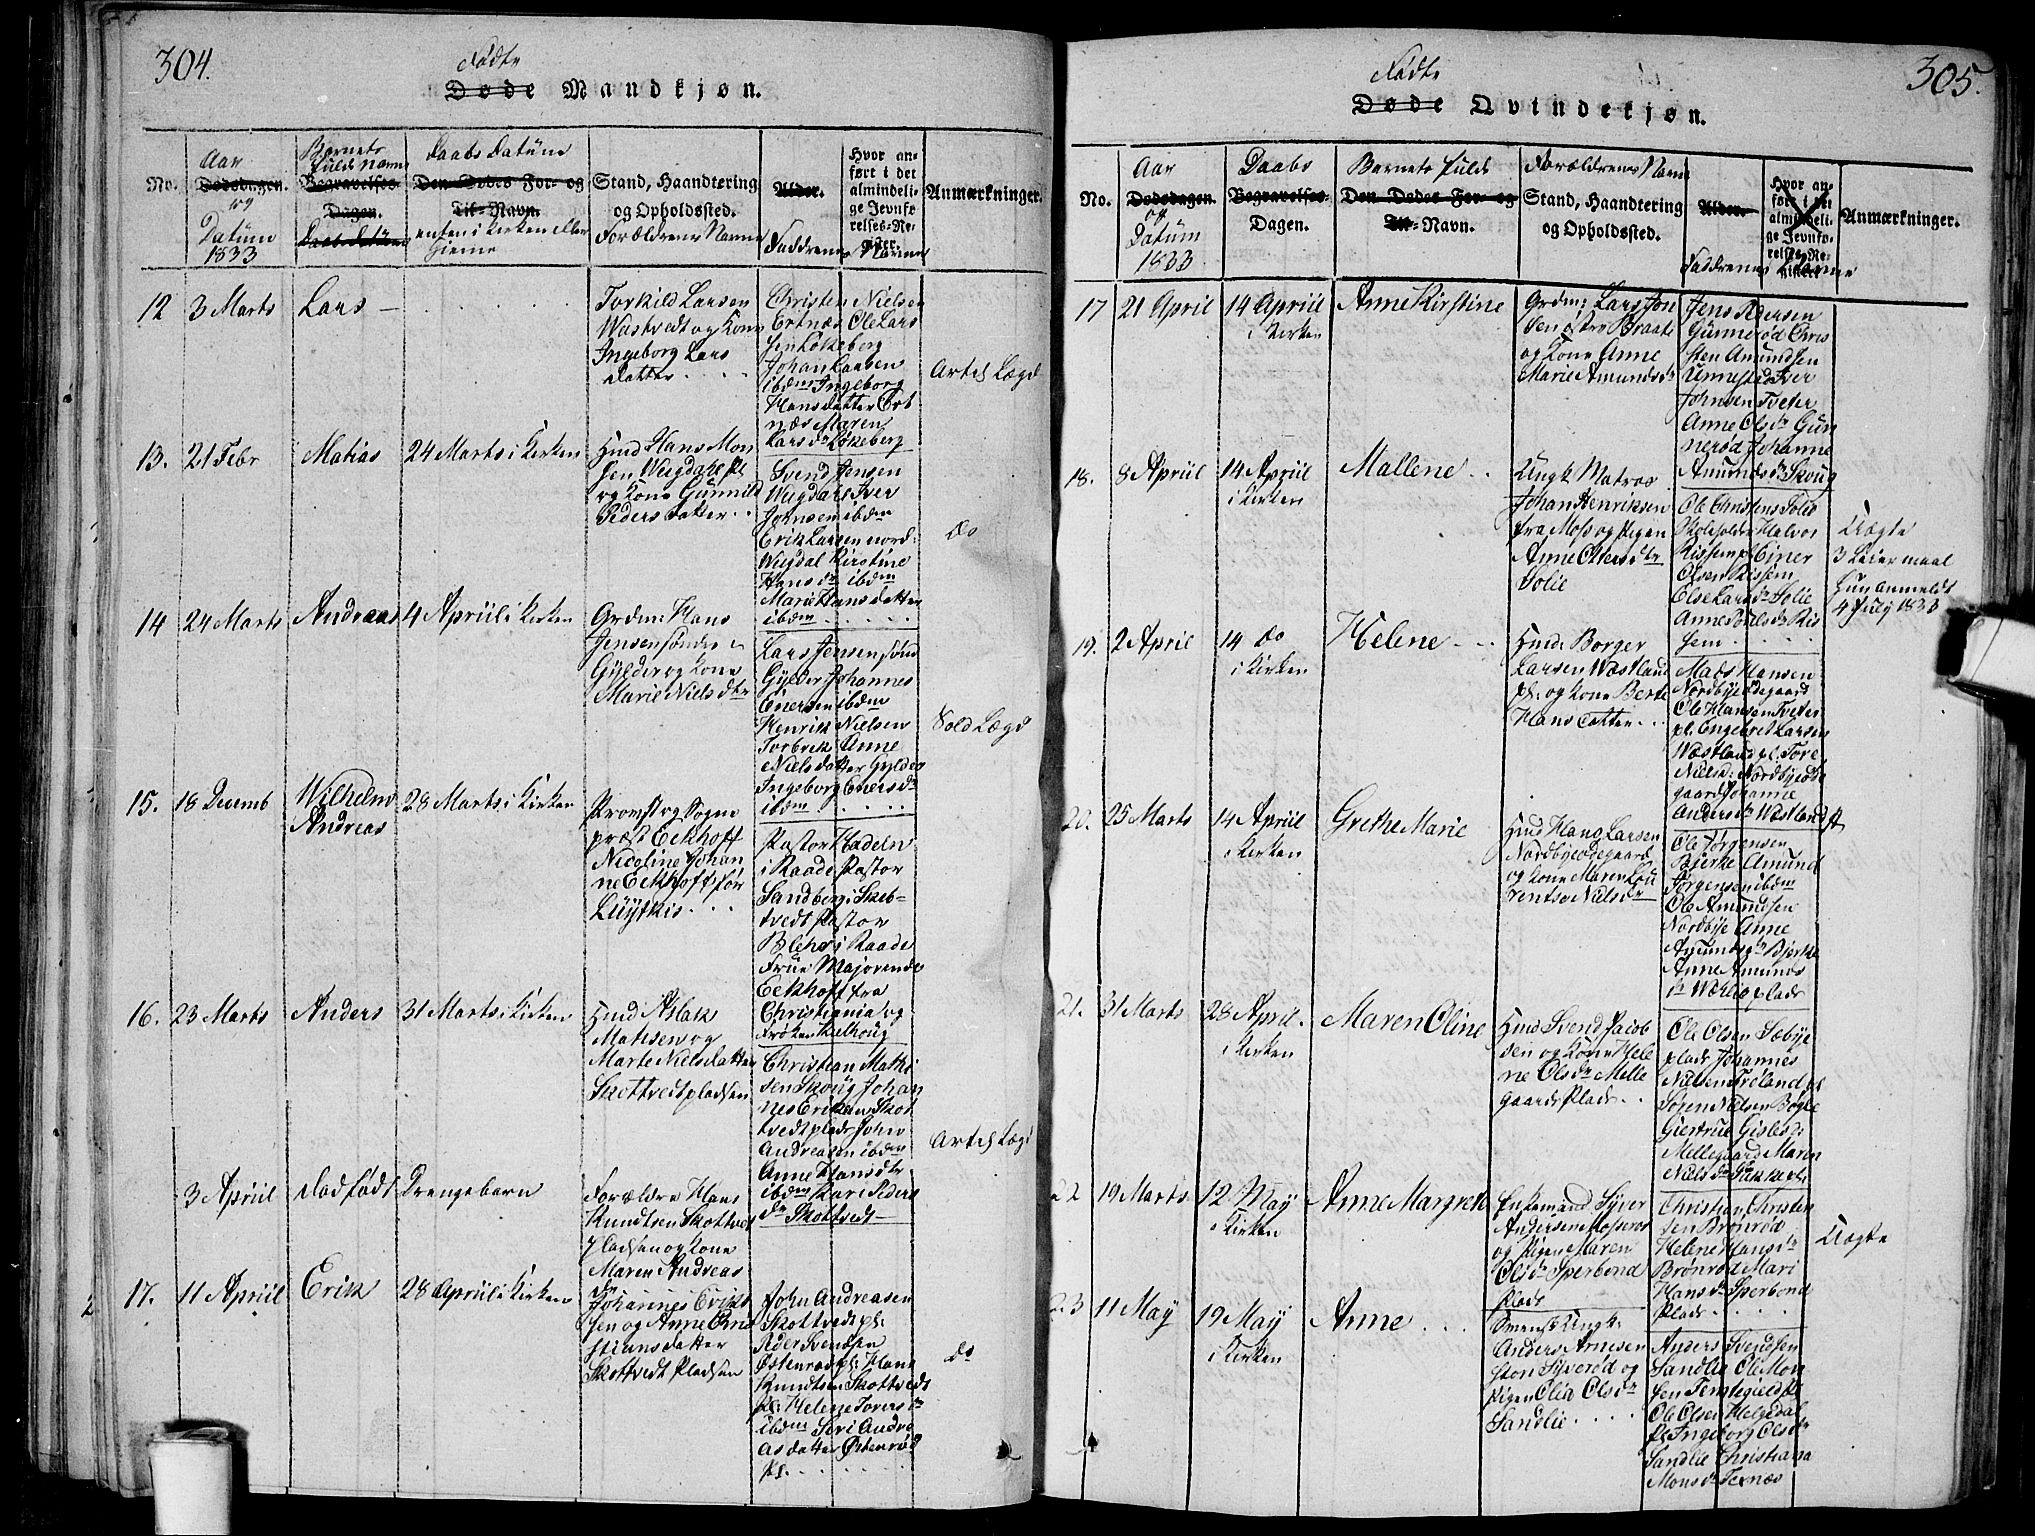 304.
Fødte
Døde Mandkjøn.
No.
Aar
Dødsdagen.
og
Datum
1833
Barnets
fulde Navne
Begravelses-
Dagen.
Daabs Datum
Daabs Datum
Den Dødes For- og
Til-Navn.
enten i Kirken eller
Hieme
Stand, Haandtering
og Opholdssted.
Forældrenes Navne
Alder.
Faddrenes Navne
Hvor an-
ført i det
almindeli-
ge Jevnfø-
relses-Re-
gister.
Anmærkninger.
12
3 Marts
Lars
Torkild Larsen
Wastvedt og Kone
Ingeborg Lars
datter
Christen Nielsen
Ertnæs Ole Lars
sen Løkeberg
Johan Larsen
ibdm Ingeborg
Hansdatter Ert
næs Maren
Larsdr Løkeberg
Artel Lægd
13.
21 Febr
Matias
24 Marts i Kirken
Hmd Hans Mon
sen Wugdahl pl
og Kone Gunnild
Pedersdatter
Svend Jensen
Wugdahl Iver
Johnsen ibdm
Erik Larsen nord:
Wugdal Kirstine
Hansdr ibdm
Marie Hansdatter
ibdm
do
14
24 Marts
Andreas
4 Apriil i Kirken
Grdm: Hans
Jensen søndre
Gylder og Kone
Marie Nielsdtr
Lars Jensen sønd
Gylder Johannes
Enersen ibdm
Henrik Nielsen
Torbrek Anne
Nielsdatter Gylder
Ingeborg Enersdr
ibdm
Sold Lægd
15.
18 Decemb
Wilhelm
Andreas
28 Marts i Kirken
Provst og Sogne
præst Eckhoff
Nicoline Johan
ne Eckhoff før
Lüytkis
Pastor Hadeln
i Raade Pastor
Sandberg i Skeb-
tvedt Pastor
Blehr i Raade
Frue Majorende
Eckhoff fra
Christiania og
Frøken Kielhoug
16.
23 Marts
Anders
31 Marts i Kirken
Hmd Aslak
Matisen og
Marte Nielsdatter
Skottvedtpladsen
Christian Mathi
sen Skoug Johan
nes Eriksen Skot
tvedtplads John
Andreasen ibdm
Anne Hansdtr
ibdm Kari Peders
dr Skottvedt
Artel Lægd
3 Apriil
dødfødt Drengebarn
Forældre Hans
Knudtsen Skottvedt
pladsen og Kone
Maren Andreas
dr
17.
11 Apriil
Erik
28 Apriil i Kirken
Johannes Eriks
sen og Anne Chri
stiansdatter
Skottvedt Pladsen
John Andreasen
Skottvedt pl:
Peder Svendsen
Østenrød pl: Hans
Knudtsen Skottvedt
pl: Helene Toresdr
ibdm Siri Andre
asdatter Østenrød
pl.
do
305.
Fødte
Døde Qvindekjøn.
No.
Aar
Dødsdagen.
og
Datum
1833
Daabs
Begravelses-
Dagen.
Barnets fulde
Den Dødes For- og
Til-Navn.
Forældrenes Navne
Stand, Haandtering
og Opholdssted.
Alder.
Faddrenes Navne
Hvor an-
ført i det
almindeli-
ge Jevnfø-
relses-Re-
gister.
Anmærkninger.
17
21 April
14 Apriil
i Kirken
Anne Kirstine
Grdm: Lars Jen
sen østre Braate
og Kone Anne
Marie Amundsdr
Jens Pedersen
Gunnerød Chris
sten Amundsen
Unnestad Iver
Johnsen Tveter
Anne Olsdr Gun
nerød Johanne
Amundsdr Skoug
18.
8 Apriil
14 Apriil
i Kirken
Mallene
Ungk Matros
Johan Henriksen
fra Moss og Pigen
Anne Ottersdtr
Solie
Ole Christens Solie
Halvor
Rissem pl Einer
Olsen Rissem
Else Larsdr Solie
Anne Nielsdr Ris
sem
Uægte
3 Leiermaal
hun anmeldt
4 July 1833
19.
2 April
14 do
i Kirken
Helene
Hmd. Borger
Larsen Wæstland
pl. og Kone Berte
Hansdatter
Mads Hansen
Nordbyeødegaard
Ole Hansen Tveter
pl. Engebret Larsen
Wæstland pl. Tore
Nielsd: Nordbyeøde
gaard Johanne
Andersdr Wæstland pl
20.
25 Marts
14 Apriil
i Kirken
Grethe Marie
Hmd Hans Larsen
Nordbyeødegaard
og Kone Maren Lou
rentse Nielsdr
Ole Jørgensen
Bjerke Amund
Jørgensen ibdm
Ole Amundsen
Nordbye Anne
Amundsdr Bjerke
Anne Amunds
dr plads
21.
31 Marts
28 April
i Kirken
Maren Oline
Hmd Svend Jacob
sen og Kone Hele
ne Olsdr Melle
gaards Plads
Ole Olsen Sæbye
plads Johannes
Nielsen Frøland pl
Søren Nielsen Bøgle
Giertrue Gislesd:
Mellegaard Maren
Nielsdr Bekke pl:
22
19 Marts
12 May
i Kirken
Anne Margrete
Enkemand Syver
Andersen Mosserød
og Pigen Maren
Olsdr Sperbond
Plads
Christian Christen
sen Brønrød
Helene Hansdr
Brønrød Mari
Hansdr Sperbond
Plads
Uægte
23
11 May
19 May
i Kirken
Anne
Svensk Ungk:
Anders Arnesen
ston Syverød og
Pigen Olea Olsdr
Sandlie
Anders Svendsen
Sandlie Ole Mon
sen Temtegied pl
Ole Olsen Helgedal
pl Ingeborg Olsdr
Sandlie Christiana
Monsdr Ternæs